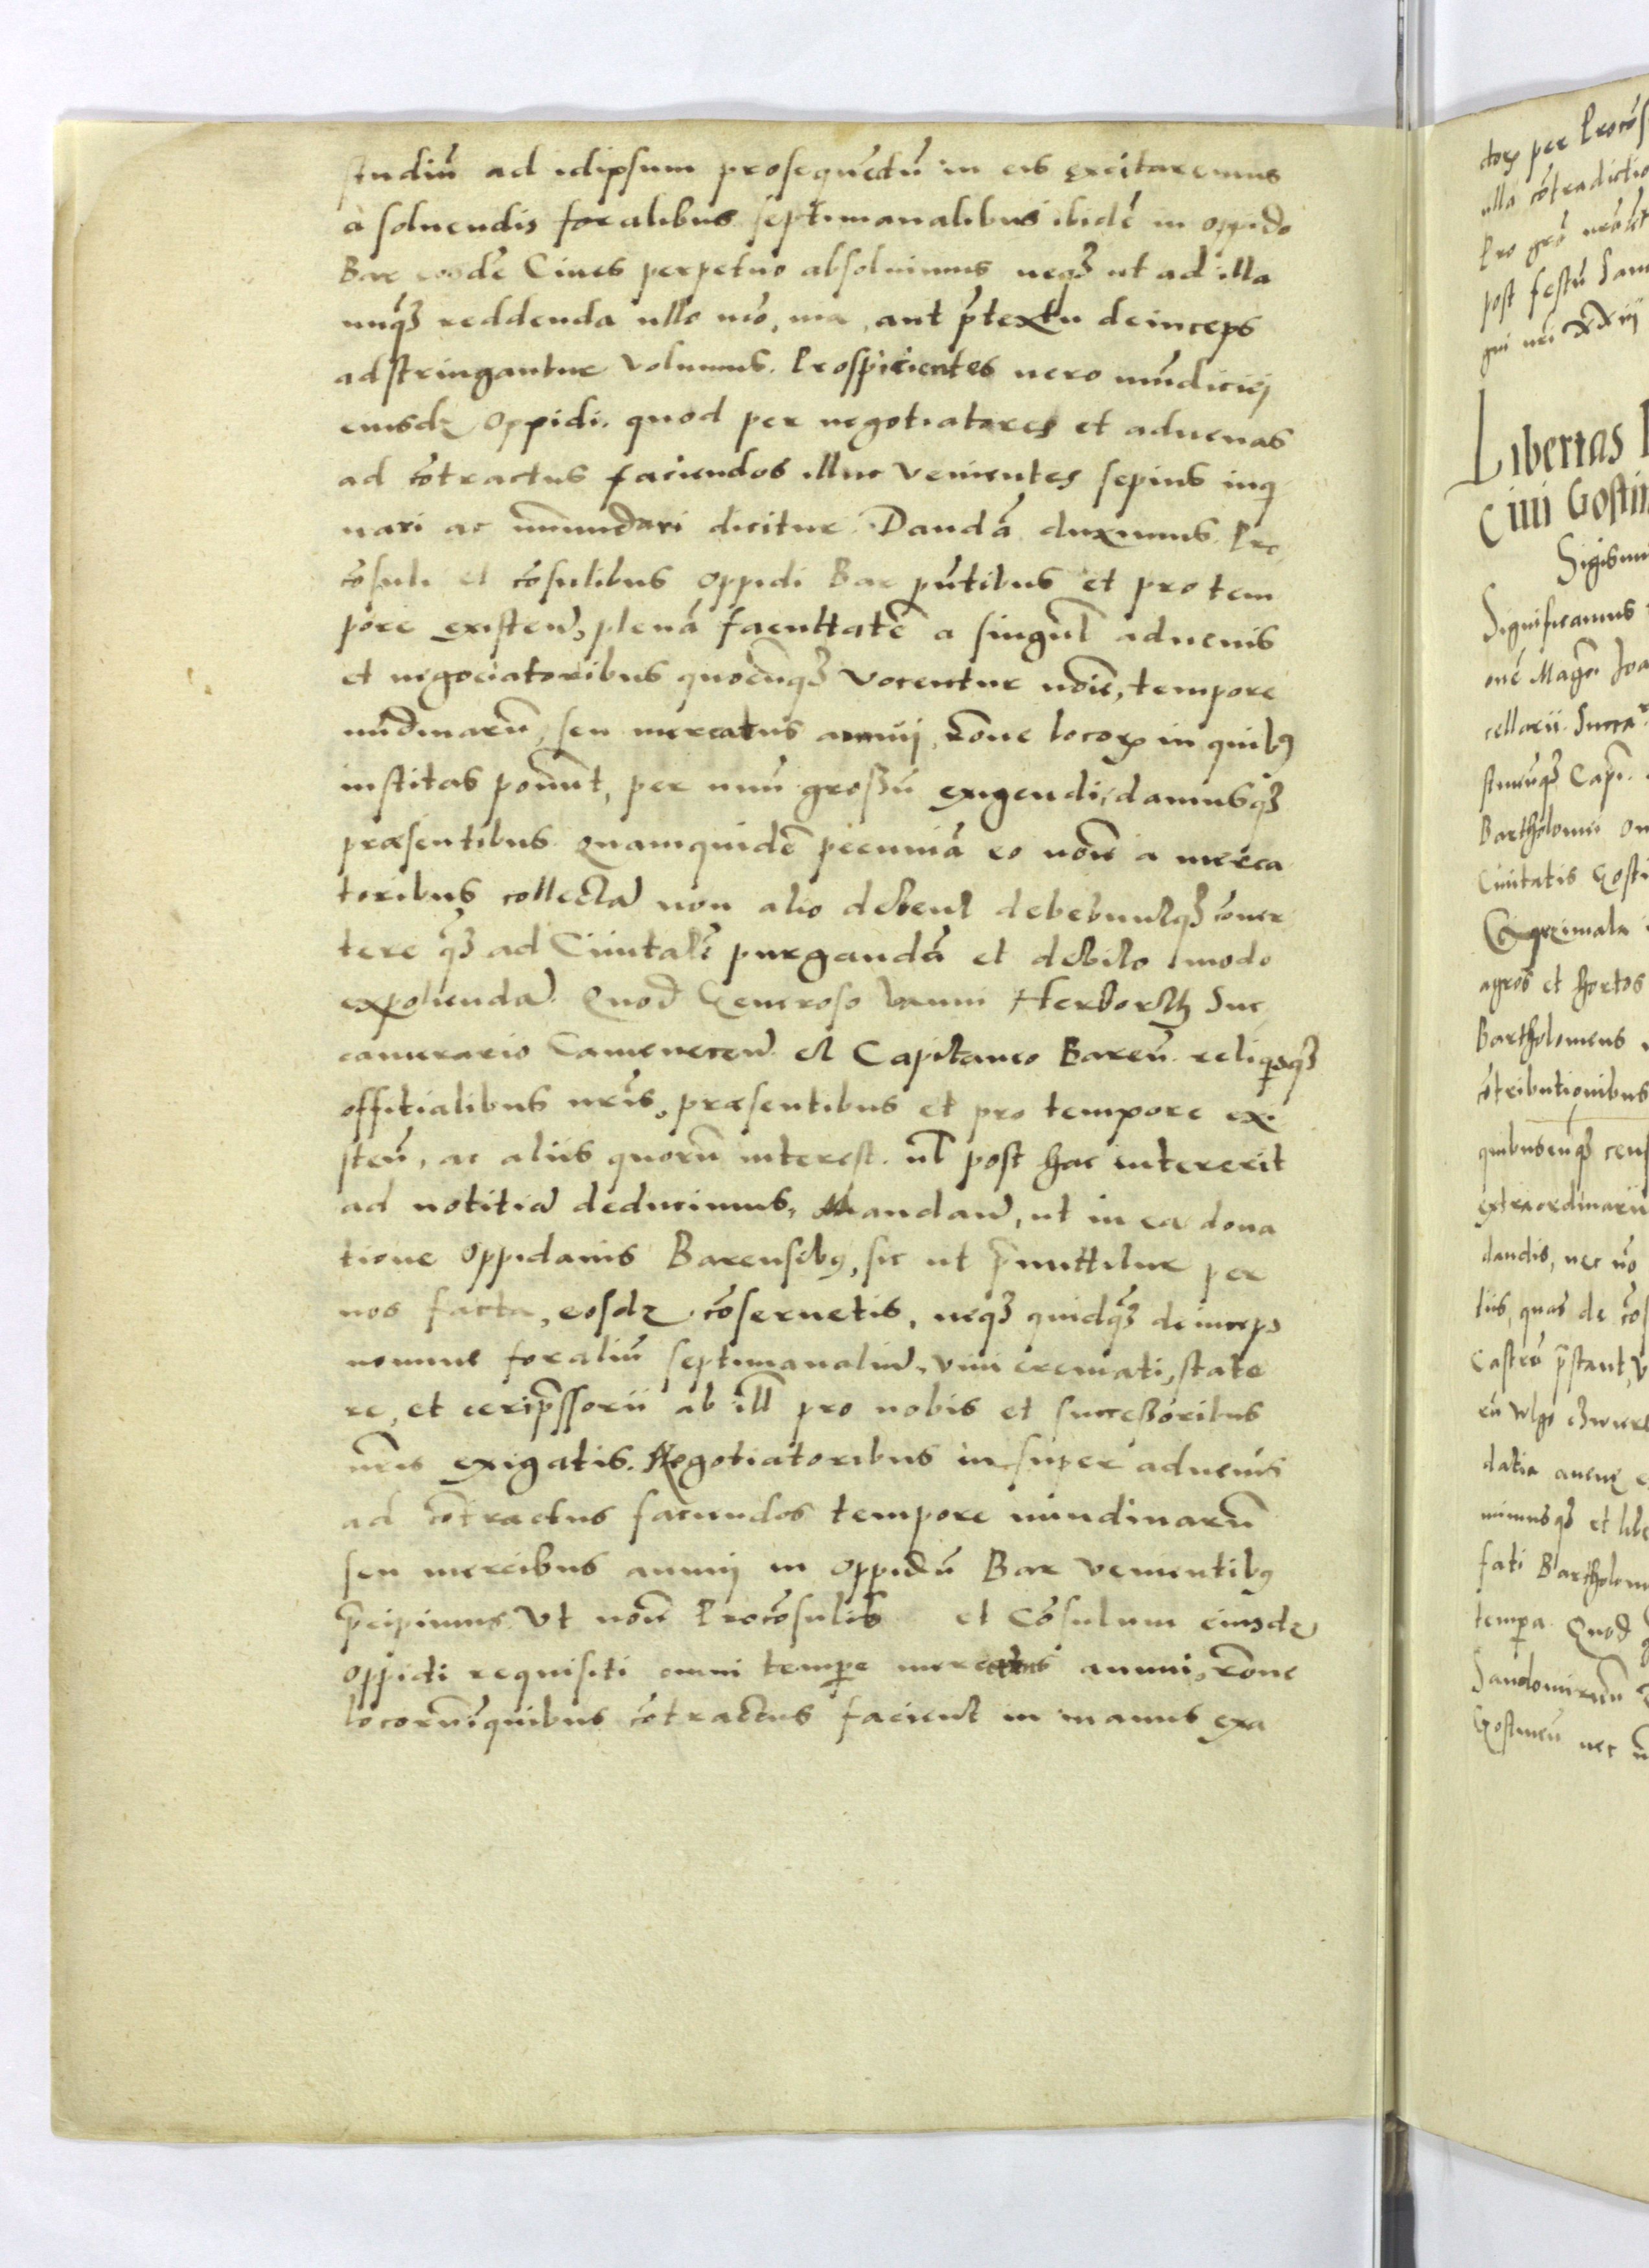 studiū ad idipsum prosequēdū in eis excitaremus
à soluendis foralibus septimanalibus ibidē in oppido
Bar eosdē Ciues perpetuo absoluimus neqꝫ ut ad illa
unq̄ꝫ reddenda ullo mō, via, aut p̄textu deinceps
adstringantur volumus. Prospicientes uero mūdiciej
eiusdꝫ Oppidi. quod per negotiatores et aduenas
ad cōtractus faciendos illuc venientes sepius inq
nari ac immūdari dicitur. Dandā duximus. Pro
cōsuli et cōsulibus oppidi Bar pn̄tibus et pro tem
pore existeñ, plenā facultatē a singul̄ aduenis
et negociatoribus quocūqꝫ vocentur nōie, tempore
nūdinarū, seu mercatus annuj, rōne locorꝝ in quibꝰ
institas ponūt, per unū großū exigendi, damusqꝫ
præsentibus. Quamquidē pecuniā eo nōie a merca
toribus collectā non alio debent debebuntqꝫ cōuer
tere q̄ꝫ ad Ciuitatē purgandā et debito modo
expoliendā. Quod Generoso Vanni Herborth Suc
camerario Cameneceñ. et Capitaneo Bareñ. reliqisqꝫ
offitialibus nr̄is, præsentibus et pro tempore exi
steñ, ac aliis quorū interest. ul̄ post hac intererit
ad notitiā deducimus, Mandañ, ut in ea dona
tione Oppidanis Barensibꝰ, sic ut p̄mittitur per
nos facta, eosdꝫ cōseruetis, neqꝫ quidq̄ꝫ deinceps
nomine foraliū septimanaliū, vini cremati, state
re, et cerip̄ssorii ab ill̄ pro nobis et succeßoribus
nr̄is exigatis. Negotiatoribus insuper aduenis
ad cōtractus faciendos tempore nundinarū
seu mercibus annuj in Oppidū Bar venientibꝰ
p̄cipimus. Vt nōie Procōsulis et Cōsulum eiusdꝫ
oppidi requisiti omni tempe mercatus annui, rōne
locorū ī quibus cōtractus facient in manus exa
ctorꝝ per Procōs
ulla cōtradictio
post festū San
Libertas
Ciui Gostin
Sigismu
Significamus
cellarii.
Bartholomei
Ciuitatis Gosti
agros et hortos
Bartholomeus
cōtributionibus
quibuscūqꝫ cens
extraordinarii
dandis, nec nō
liis, quas de cōs
Castrū p̄stant, v
datia auene e
nimusqꝫ et libe
fati Bartholom
tempa. Quod
Sandomirieñ
Gostineñ nec